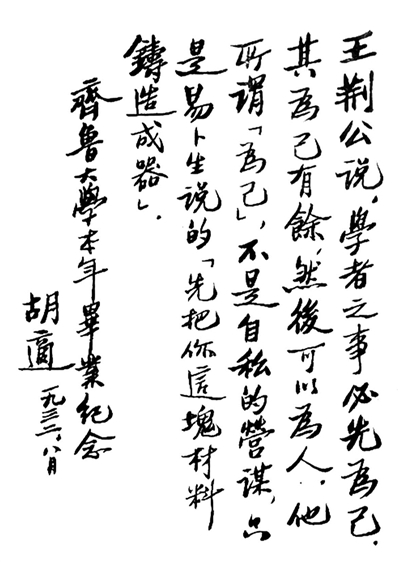 王荆公说，學者之事必先為己．
其為己有餘，然後可以為人．他
所谓「為己」，不是自私的營謀，只
是易卜生说的「先把你這塊材料
鑄造成器」．
齊魯大學本年畢業纪念
胡適
一九三二，八月